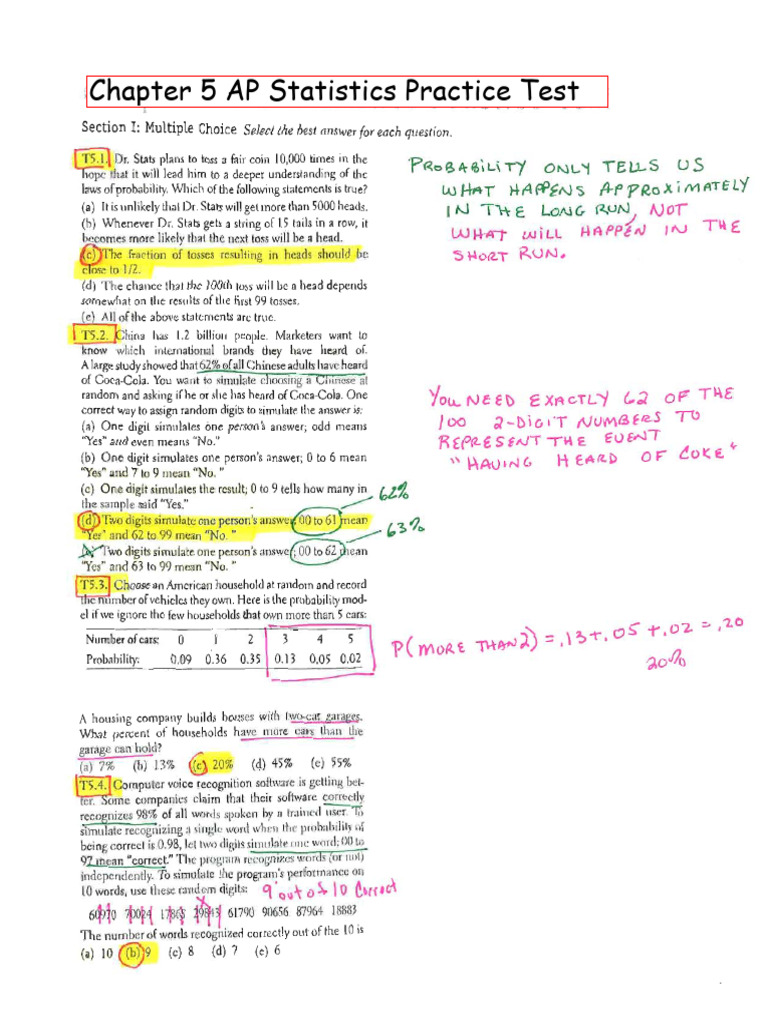 Chapter 5 AP Statistics Practice Test
Section I: Multiple Choice Select the best answer for each question.
T5.1. Dr. Stats plans to toss a fair coin 10,000 times in the
hope that it will lead him to a deeper understanding of the
laws of probability. Which of the following statements is true?
(a) It is unlikely that Dr. Stats will get more than 5000 heads.
(b) Whenever Dr. Stats gets a string of 15 tails in a row, it
becomes more likely that the next toss will be a head.
(c) The fraction of tosses resulting in heads should be
close to 1/2.
(d) The chance that the 100th toss will be a head depends
somewhat on the results of the first 99 tosses.
(e) All of the above statements are true.
PROBABILITY ONLY TELLS US
WHAT HAPPENS APPROXIMATELY
IN THE LONG RUN, NOT
WHAT WILL HAPPEN IN THE
SHORT RUN.
T5.2. China has 1.2 billion people. Marketers want to
know which international brands they have heard of.
A large study showed that 62% of all Chinese adults have heard
of Coca-Cola. You want to simulate choosing a Chinese at
random and asking if he or she has heard of Coca-Cola. One
correct way to assign random digits to simulate the answer is:
(a) One digit simulates one person's answer; odd means
"Yes" and even means "No."
(b) One digit simulates one person's answer; 0 to 6 mean
"Yes" and 7 to 9 mean "No."
(c) One digit simulates the result; 0 to 9 tells how many in
the sample said "Yes."
(d) Two digits simulate one person's answer; 00 to 61 mean
"Yes" and 62 to 99 mean "No."
Two digits simulate one person's answer; 00 to 62 mean
"Yes" and 63 to 99 mean "No."
YOU NEED EXACTLY 62 OF THE
100 2-DIGIT NUMBERS TO
REPRESENT THE EVENT
"HAVING HEARD OF COKE"
62%
63%
T5.3. Choose an American household at random and record
the number of vehicles they own. Here is the probability mod-
el if we ignore the few households that own more than 5 cars:
Number of cars: 0 1 2 3 4 5
Probability: 0.09 0.36 0.35 0.13 0.05 0.02
P(MORE THAN 2) = .13+.05+.02=.20
20%
A housing company builds houses with two-car garages.
What percent of households have more cars than the
garage can hold?
(a) 7% (b) 13% (c) 20% (d) 45% (e) 55%
T5.4. Computer voice recognition software is getting bet-
ter. Some companies claim that their software correctly
recognizes 98% of all words spoken by a trained user. To
simulate recognizing a single word when the probability of
being correct is 0.98, let two digits simulate one word; 00 to
97 mean "correct." The program recognizes words (or not)
independently. To simulate the program's performance on
10 words, use these random digits:
9 out of 10 correct
60970 70024 17868 29843 61790 90656 87964 18883
The number of words recognized correctly out of the 10 is
(a) 10 (b) 9 (c) 8 (d) 7 (e) 6